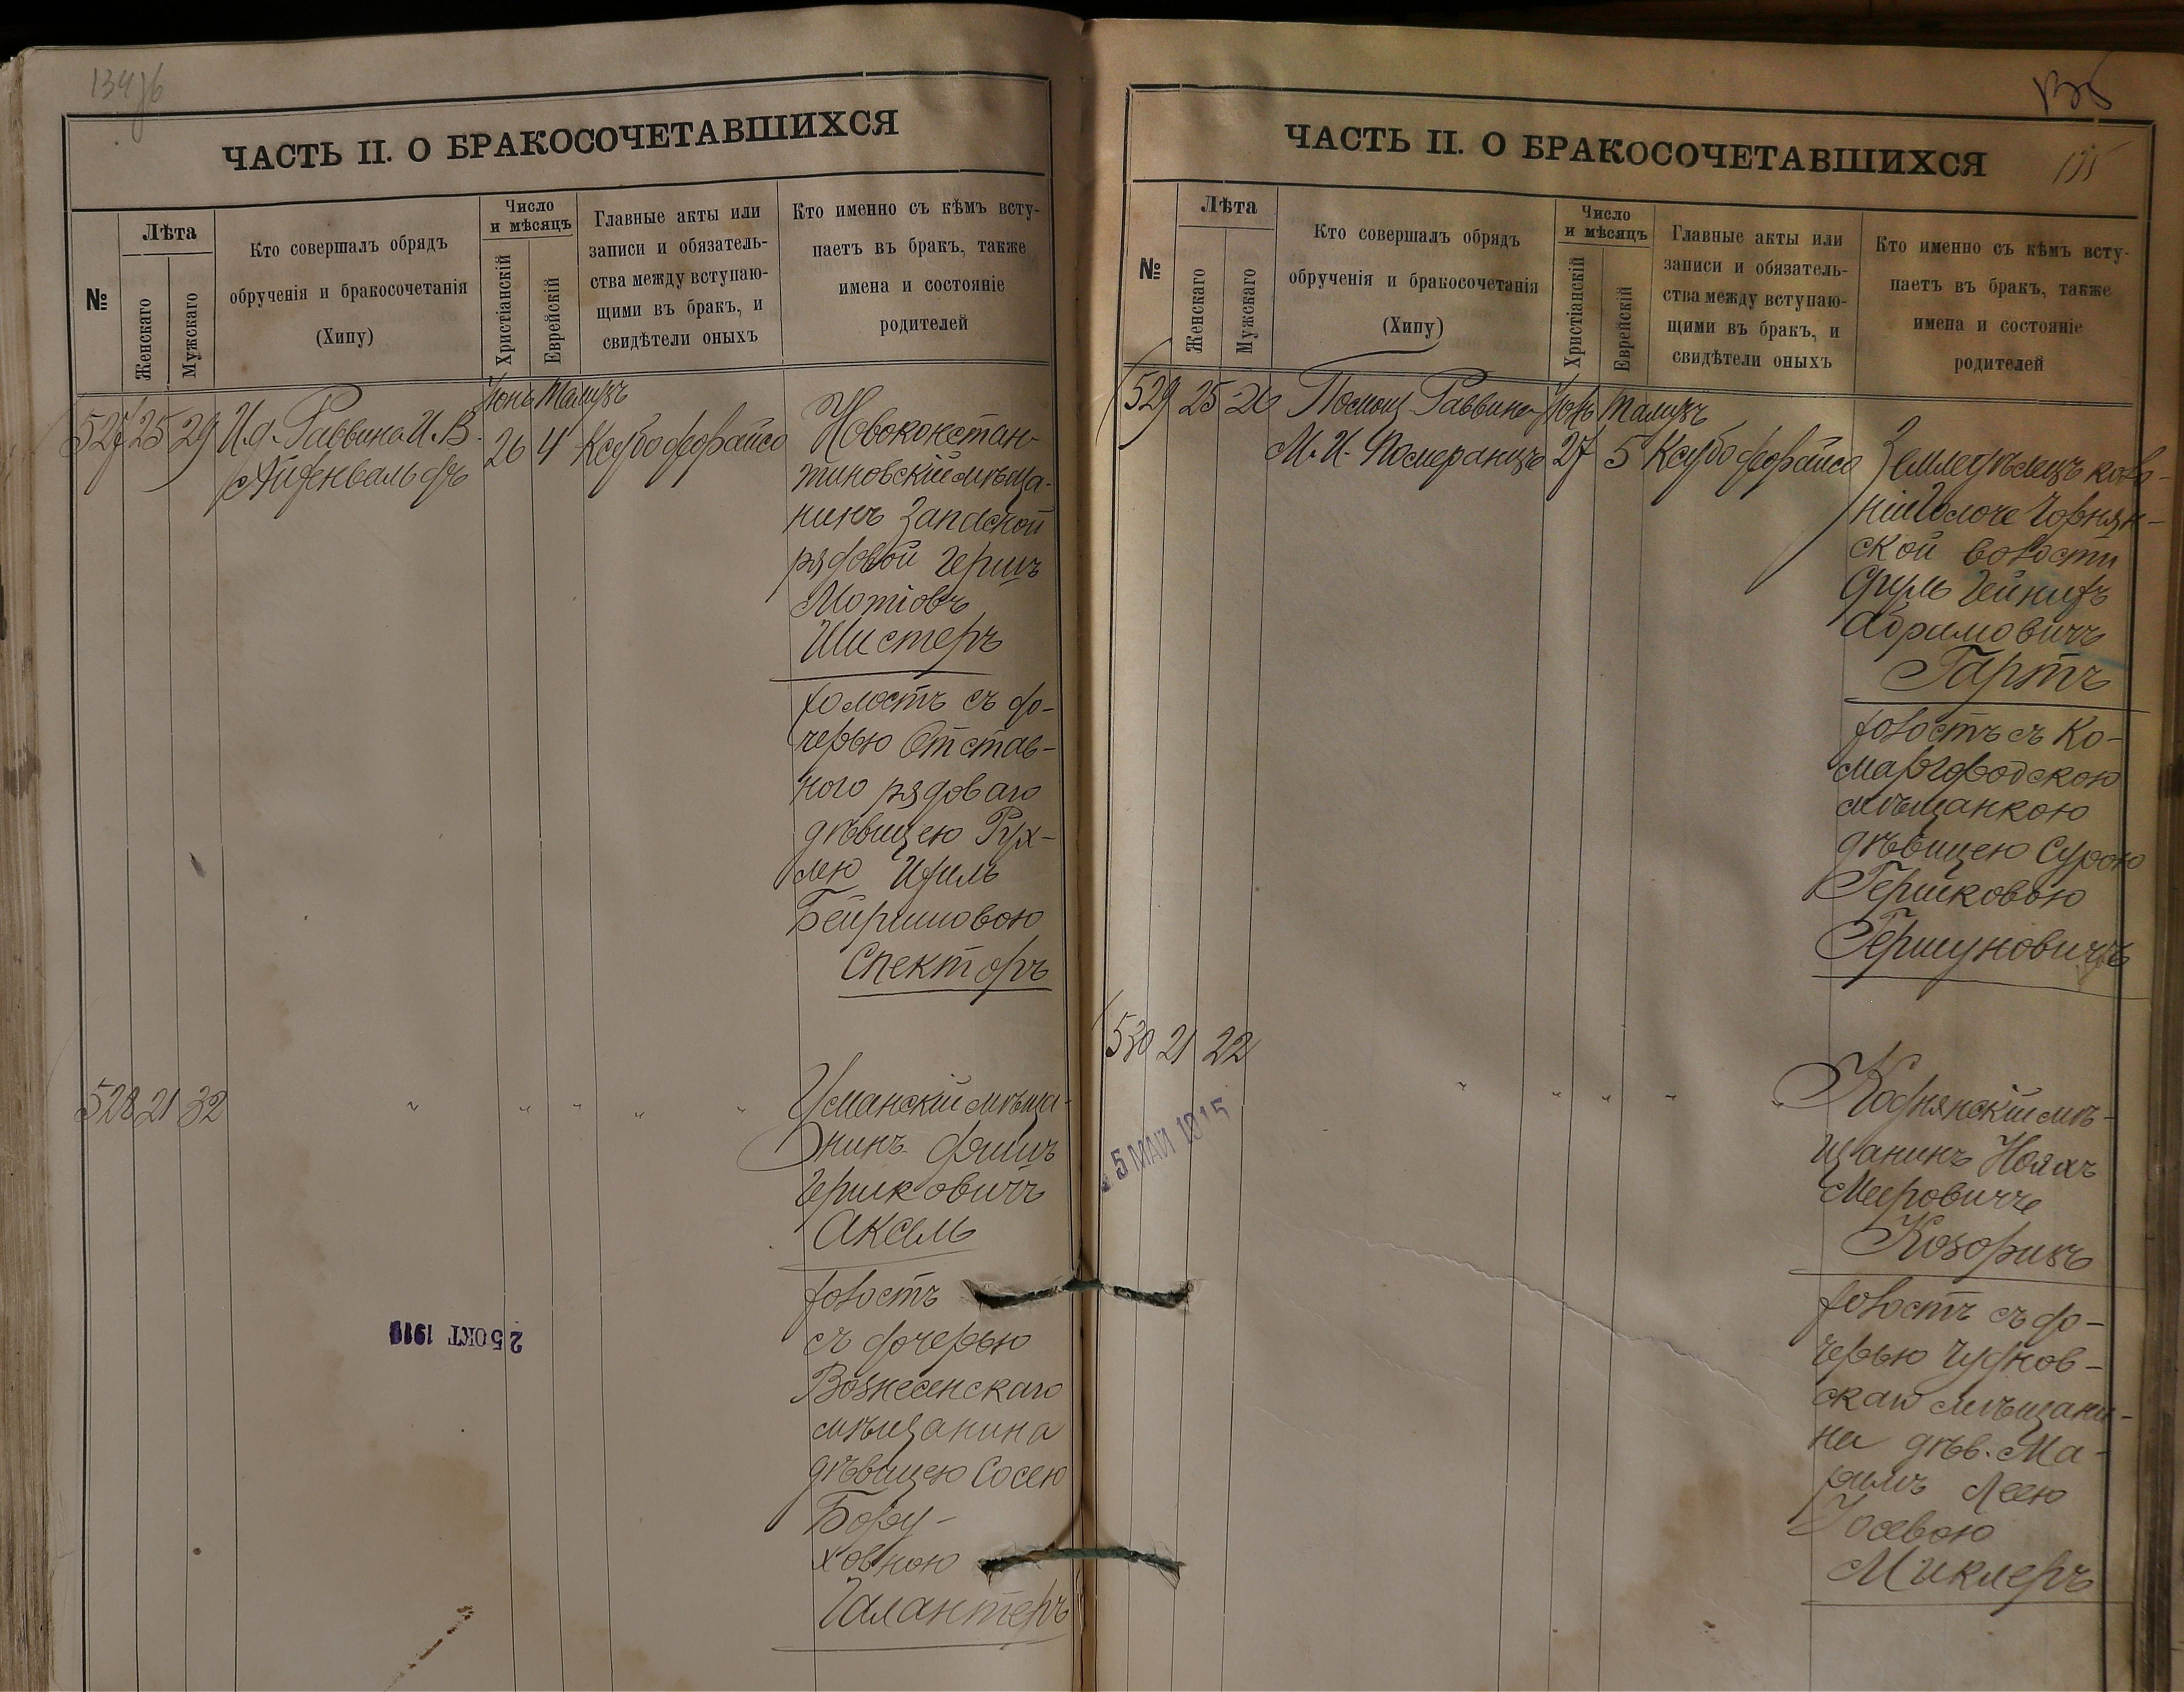 ЧАСТЬ II. О БРАКОСОЧЕТАВШИХСЯ
№
Лѣта
Женскаго
Мужскаго
Кто совершалъ обрядъ
обрученія и бракосочетанія
(Хипу)
Число
и мѣсяцъ
Христіанскій
Еврейскій
Главные акты или
записи и обязатель-
ства между вступаю-
щими въ бракъ, и
свидѣтели оныхъ
Кто именно съ кѣмъ всту-
паетъ въ бракъ, также
имена и состояніе
родителей
Іюнь Тамузъ
527 25 29 И.д. Раввина И. В.
Айзенвальдъ
26 4 Ксубо деорайсо
Новоконстан-
тиновскій мѣща-
нинъ Запасной
рядовой Гершъ
Мотіовъ
Шистеръ
холостъ съ до-
черью Отстав-
ного рядоваго
дѣвицею Рух-
лею
Спекторъ
528 21 32 " " " " "
Уманскій мѣща-
нинъ
Гершковичъ
Аксель
холостъ
съ дочерью
Вознесенскаго
мѣщанина
дѣвицею Сосею
Бору-
ховною
Галантеръ
25 ОКТ 191
ЧАСТЬ II. О БРАКОСОЧЕТАВШИХСЯ
135
№
Лѣта
Женскаго
Мужскаго
Кто совершалъ обрядъ
обрученія и бракосочетанія
(Хипу)
Число
и мѣсяцъ
Христіанскій
Еврейскій
Главные акты или
записи и обязатель-
ства между вступаю-
щими въ бракъ, и
свидѣтели оныхъ
Кто именно съ кѣмъ всту-
паетъ въ бракъ, также
имена и состояніе
родителей
529 25 26 Помощ. Раввина Іюнь Тамузъ
М. И. Померанцъ 27 5 Ксубо деорайсо
Земледѣлецъ коло-
ніи
ской волости
Абрамовичъ
Гартъ
холостъ съ Ко-
маргородскою
мѣщанкою
дѣвицею Сурою
Гершковою
Гершуновичъ
530 21 22 " " " " "
Коднянскій мѣ-
щанинъ Нояхъ
Мееровичъ
Козоризъ
холостъ съ до-
черью Чуднов-
скаго мѣщани-
на дѣв. Ма-
Леею
Іосевою
Миклеръ
5 МАЙ 1915